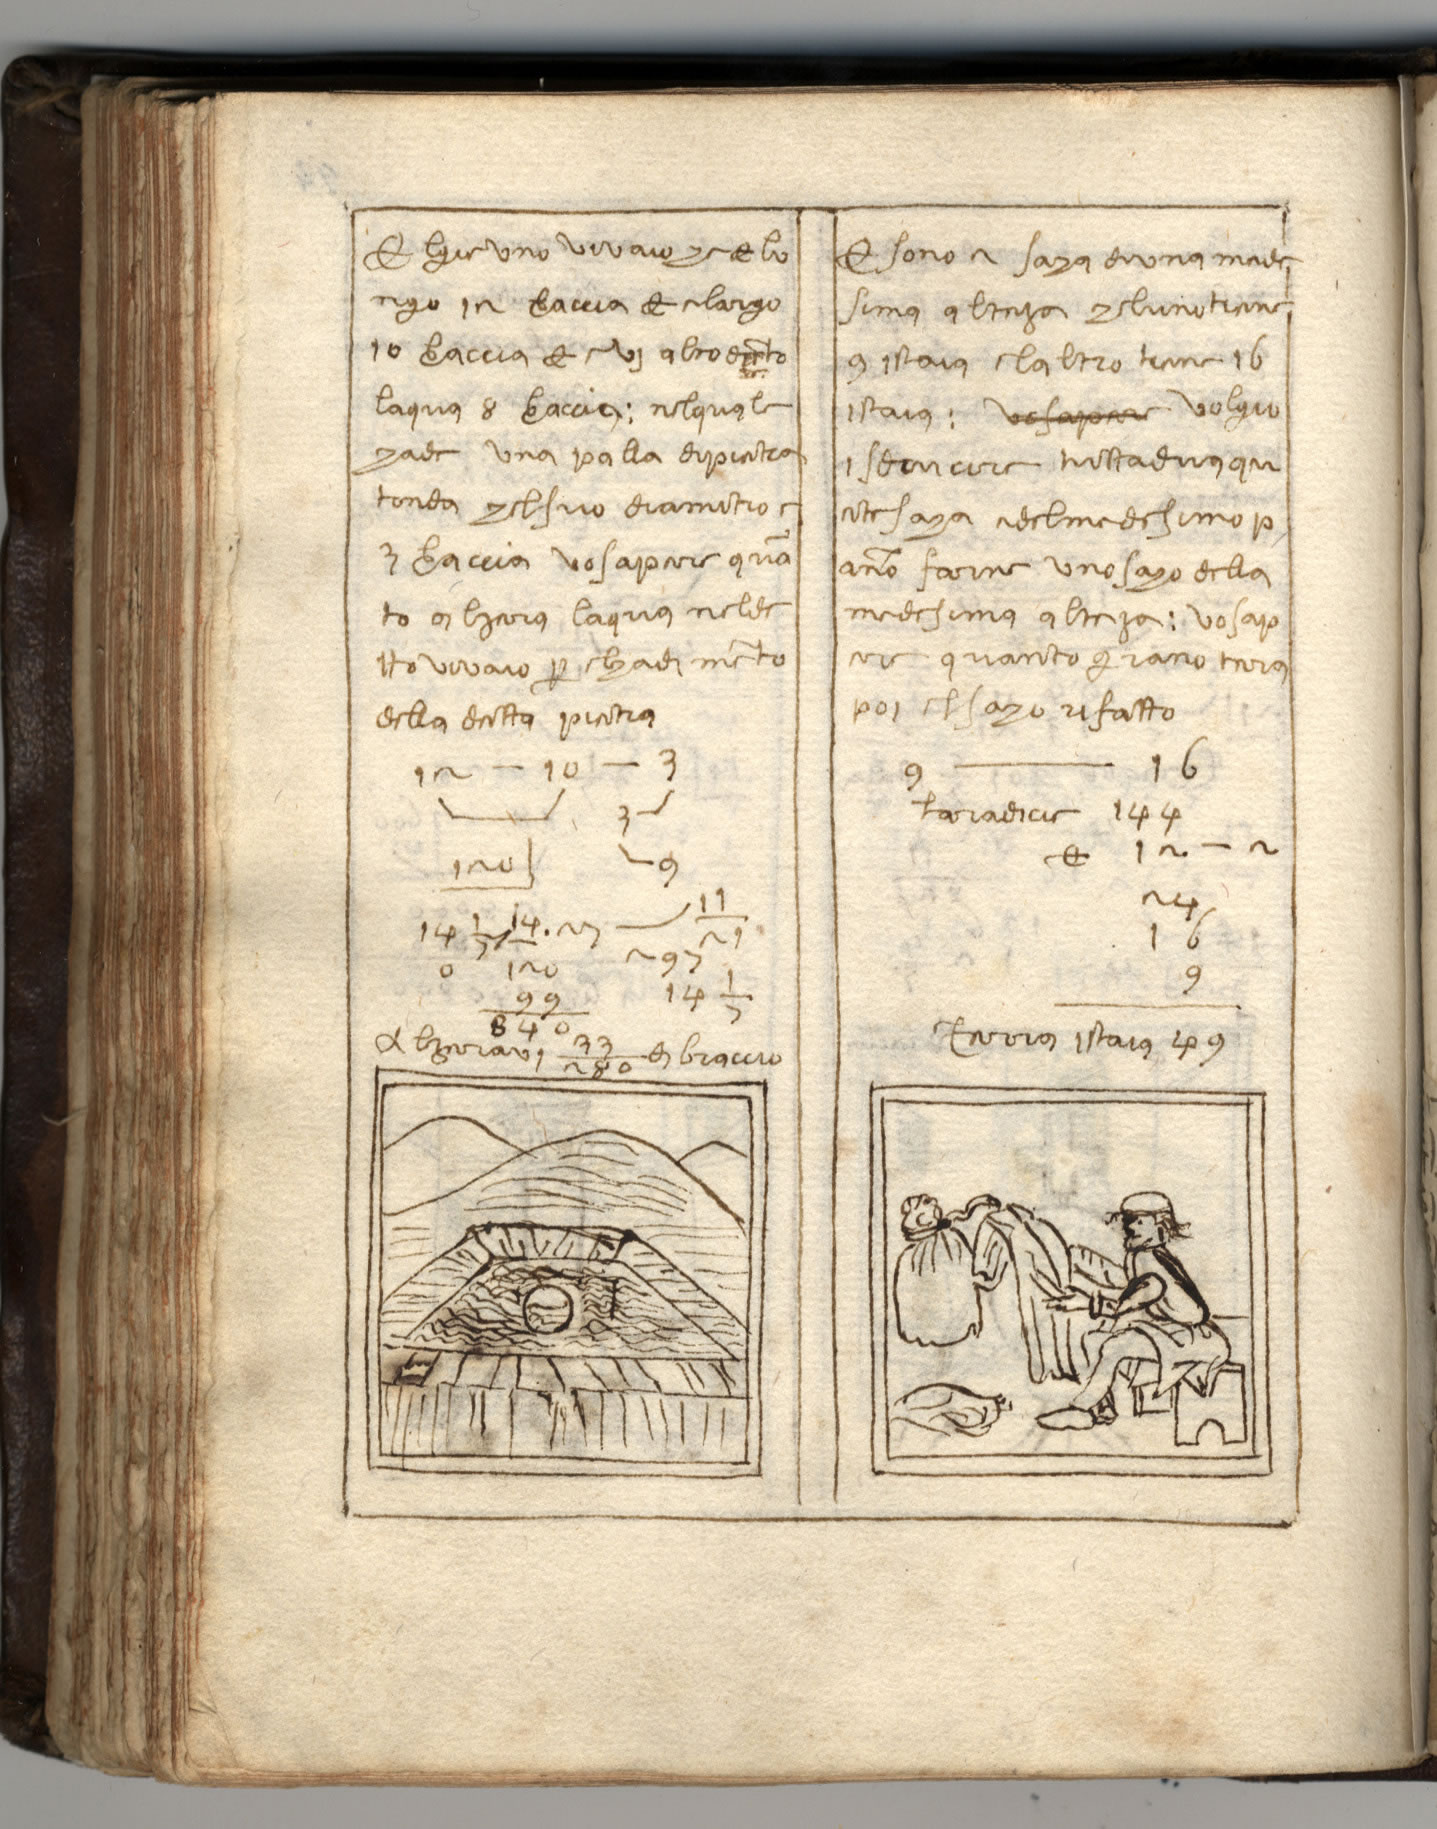 Et glie uno vivaio che e lo
ngo 12 braccia et e largo
10 braccia et evi alto dento
laqua 8 braccia: nelquale
chade una palla dipietra
tonda chelsuo diamitro e
3 braccia vosapere quā
to alzera laqua nelde
tto vivaio p chadimēto
della detta pietra
12 — 10 — 3
3
120 9
14 1/7 14 . 27 — 11/21
0 120 297
99 14 1/7
840
Alzeravi 33/280 di braccio
Et sono 2 sacha diuna mede
sima alteza cheluno tiene
9 istaia elaltro tiene 16
istaia: vosapere volglio
isdrucire tuttadua qu
este sacha edelmedesimo p
anō farne uno sacho della
medesima alteza: vosap
ere quanto grano terra
poi elsacho rifatto
9 — 16
la radicie 144
e 12 — 2
24
16
9
Terra istaia 49